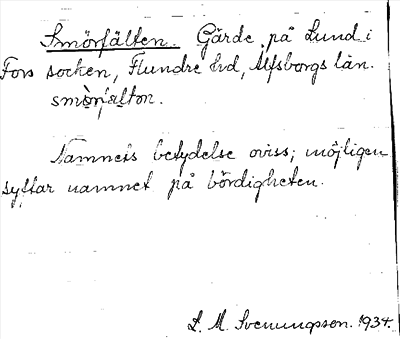 Smörfälten. Gärde på Lund i
Fors socken, Flundre hd, Älfsborgs län.
smö̀rfæ̀lton.
Namnets betydelse oviss; möjligen
syftar namnet på bördigheten.
L. M. Svenungsson. 1934.